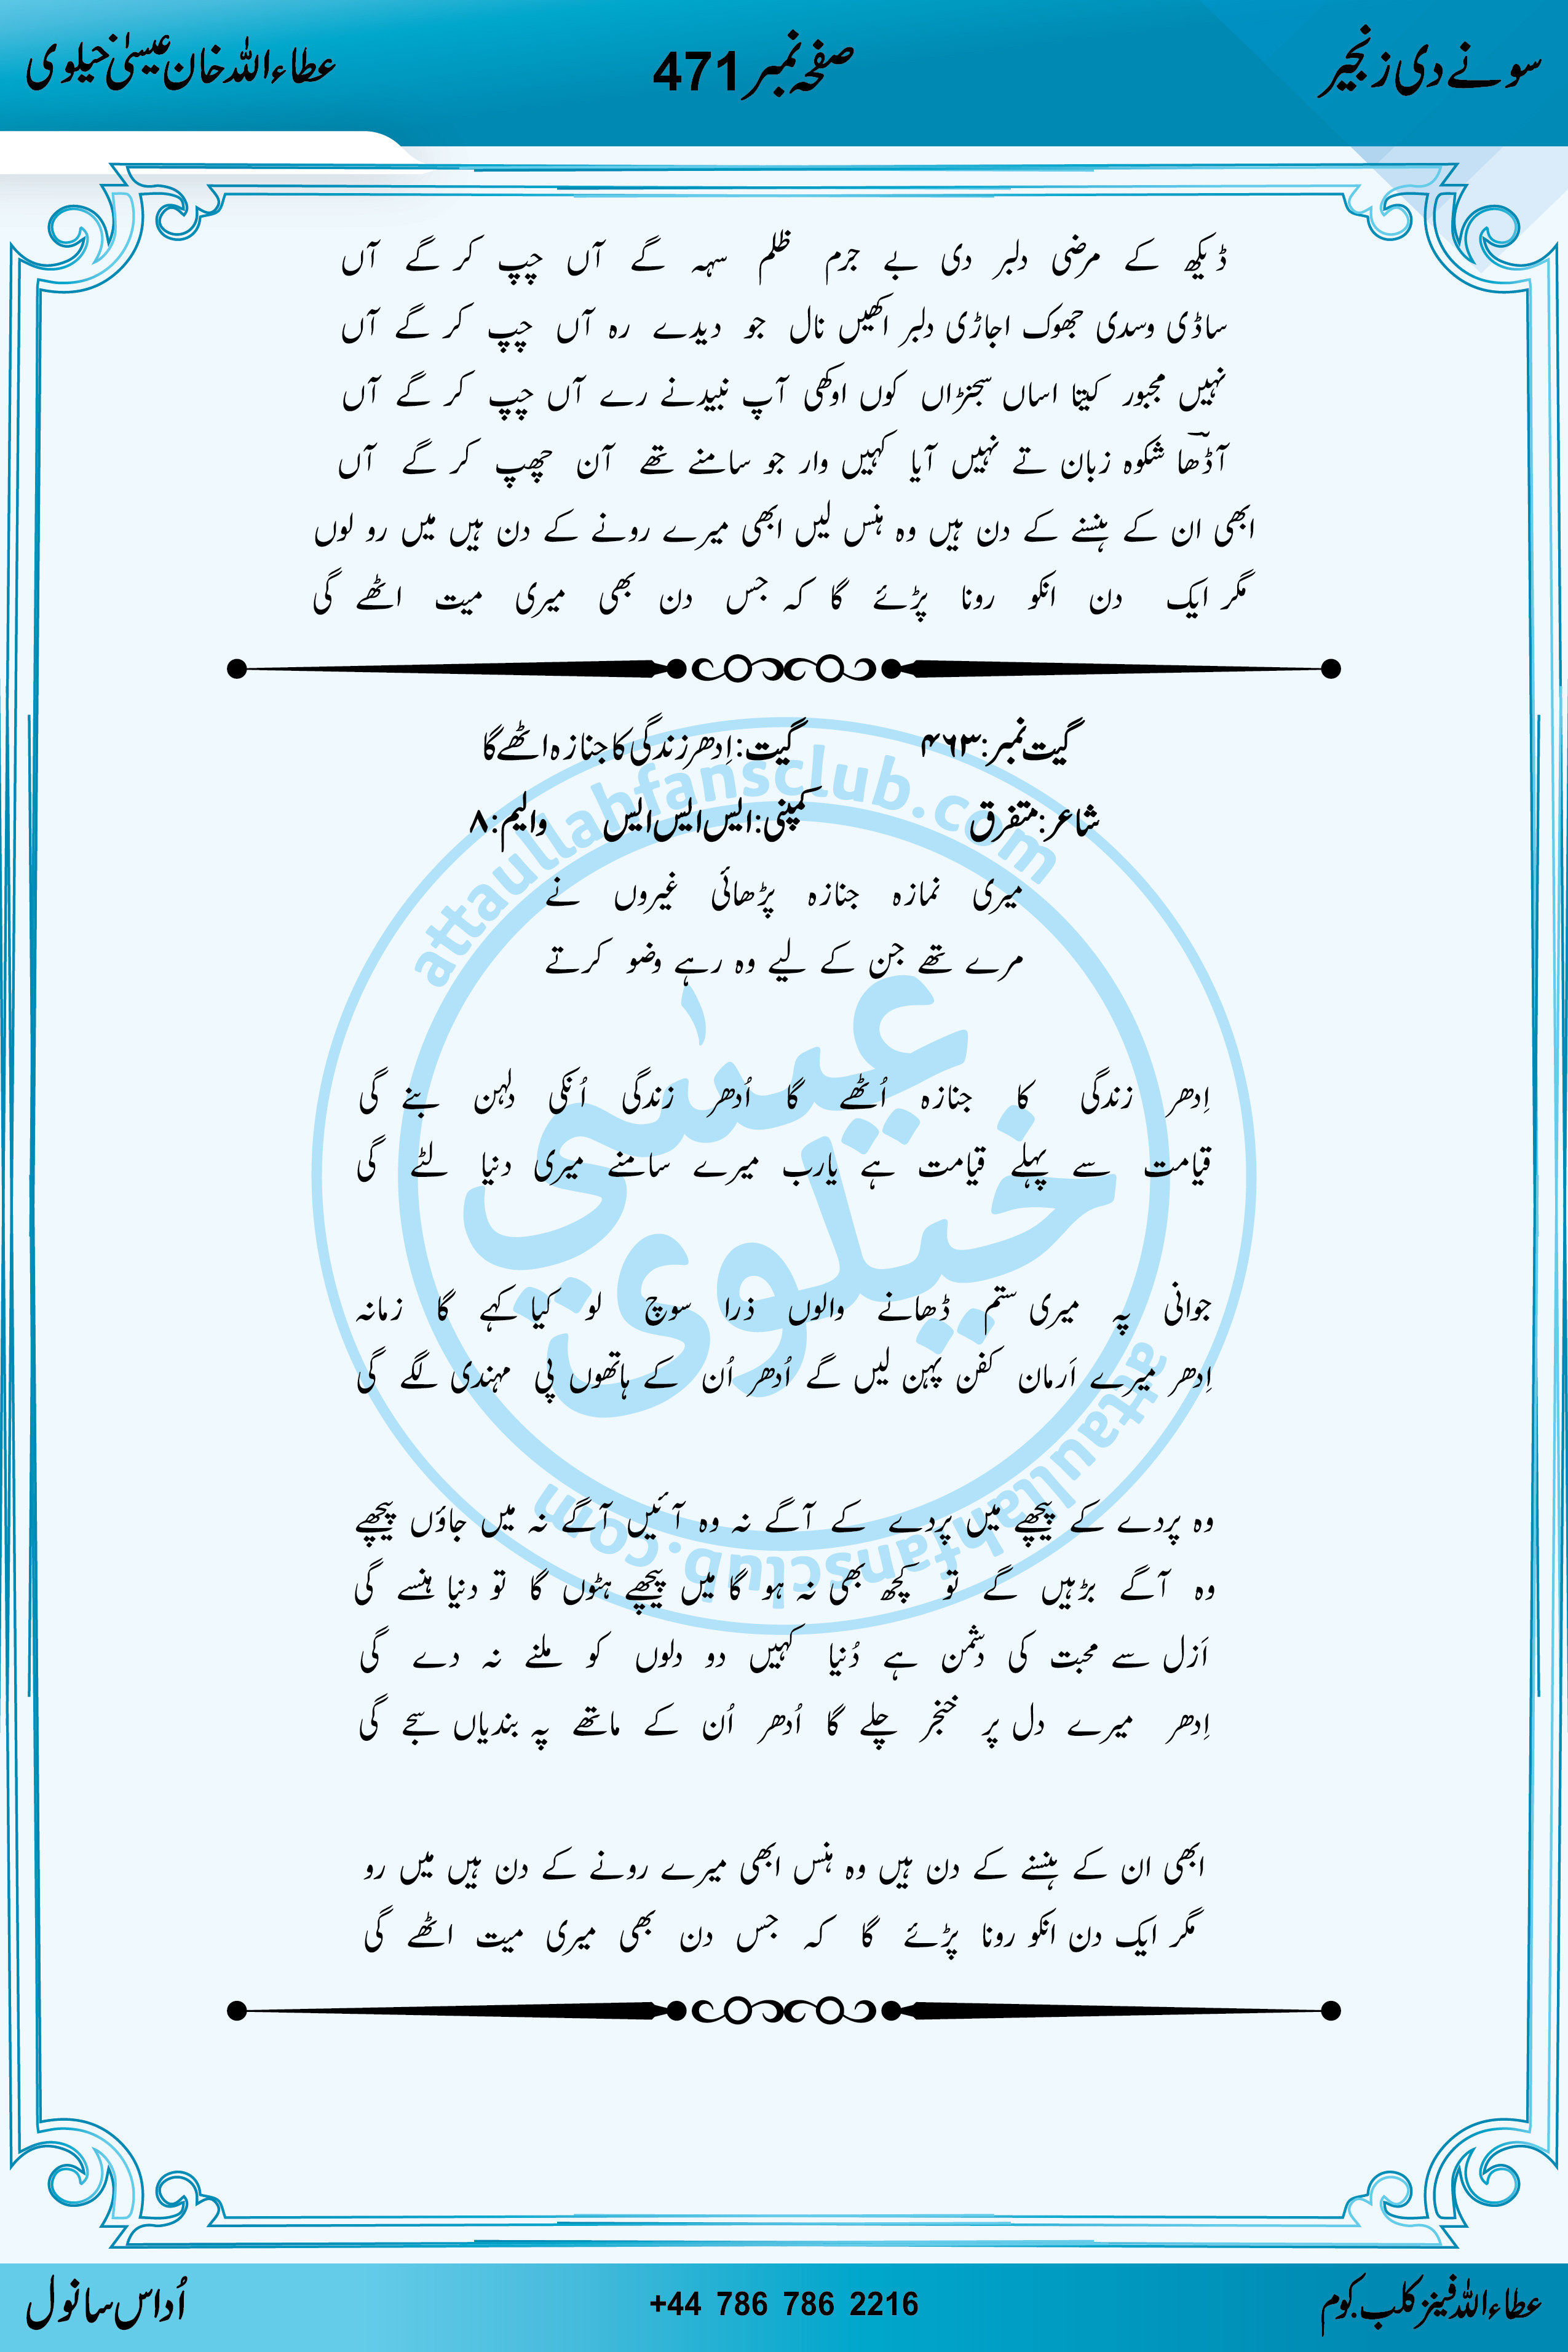 سونے دی زنجیر
صفحہ نمبر 471
عطاءاللہ خان عیسیٰ خیلوی
ڈیکھ کے مرضی دلبر دی بے جرم ظلم سہہ گے آں چپ کر گے آں
ساڈی وسدی جھوک اجاڑی دلبر اکھیں نال جو دیدے رہ آں چپ کر گے آں
نہیں مجبور کیتا اساں سجنڑاں کوں اوکھی آپ نبیدنے رے آں چپ کر گے آں
آڈھا شکوہ زبان تے نہیں آیا کہیں وار جو سامنے تھے آن چھپ کر گے آں
ابھی ان کے ہنسنے کے دن ہیں وہ ہنس لیں ابھی میرے رونے کے دن ہیں میں رو لوں
مگر ایک دن انکو رونا پڑئے گا کہ جس دن بھی میری میت اٹھے گی
گیت نمبر: ۴۶۳ گیت: اِدھر زندگی کا جنازہ اٹھے گا
شاعر: متفرق کمپنی: ایس ایس ایس والیم: ۸
میری نمازہ جنازہ پڑھائی غیروں نے
مرے تھے جن کے لیے وہ رہے وضو کرتے
اِدھر زندگی کا جنازہ اُٹھے گا اُدھر زندگی اُنکی دلہن بنے گی
قیامت سے پہلے قیامت ہے یارب میرے سامنے میری دنیا لٹے گی
جوانی پہ میری ستم ڈھانے والوں ذرا سوچ لو کیا کہے گا زمانہ
اِدھر میرے اَرمان کفن پہن لیں گے اُدھر اُن کے ہاتھوں پی مہندی لگے گی
وہ پردے کے پیچھے میں پردے کے آگے نہ وہ آئیں آگے نہ میں جاؤں پیچھے
وہ آگے بڑہیں گے تو کچھ بھی نہ ہو گا میں پیچھے ہٹوں گا تو دنیا ہنسے گی
اَزل سے محبت کی دشمن ہے دُنیا کہیں دو دلوں کو ملنے نہ دے گی
اِدھر میرے دل پر خنجر چلے گا اُدھر اُن کے ماتھے پہ بندیاں سجے گی
ابھی ان کے ہنسنے کے دن ہیں وہ ہنس ابھی میرے رونے کے دن ہیں میں رو
مگر ایک دن انکو رونا پڑئے گا کہ جس دن بھی میری میت اٹھے گی
attaullahfansclub.com
عیسی
خیلوی
attaullahfansclub.com
عطاءاللہ فینز کلب.کوم
+44 786 786 2216
اُداس سانول